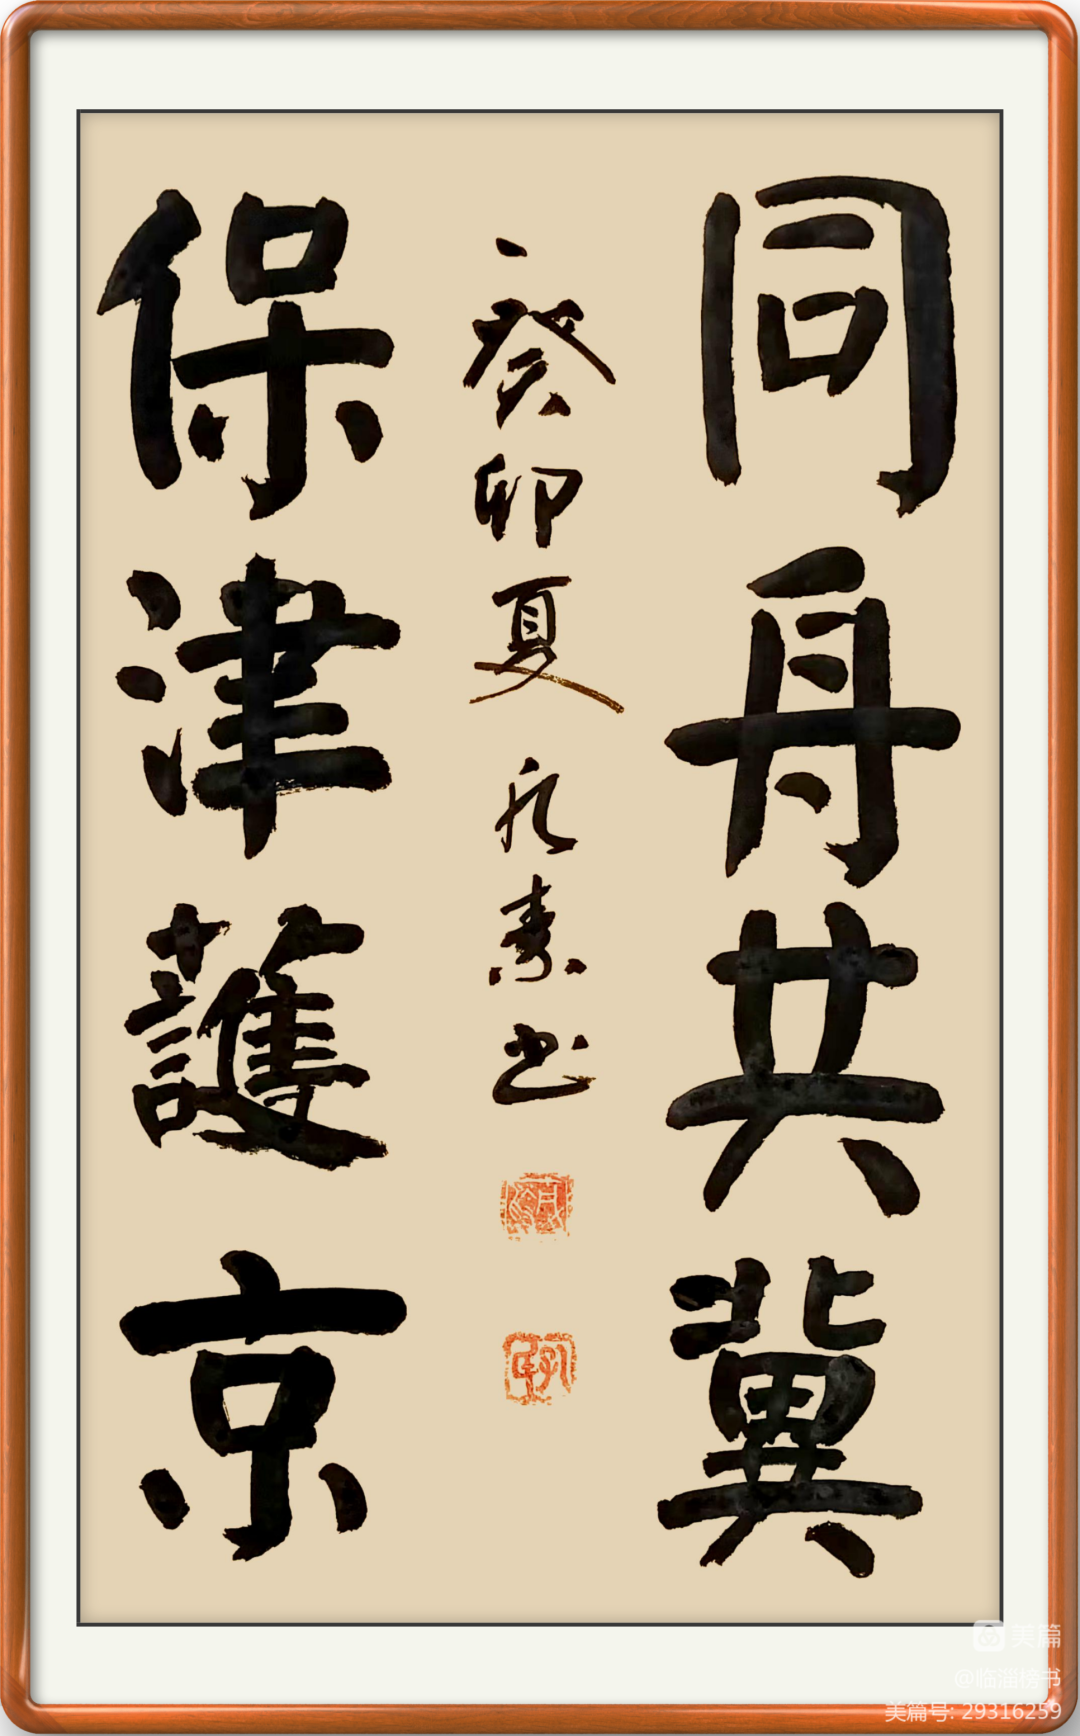 同舟共冀
癸卯夏
素书
保津護京
美篇
@临淄榜书
美篇号: 29316259